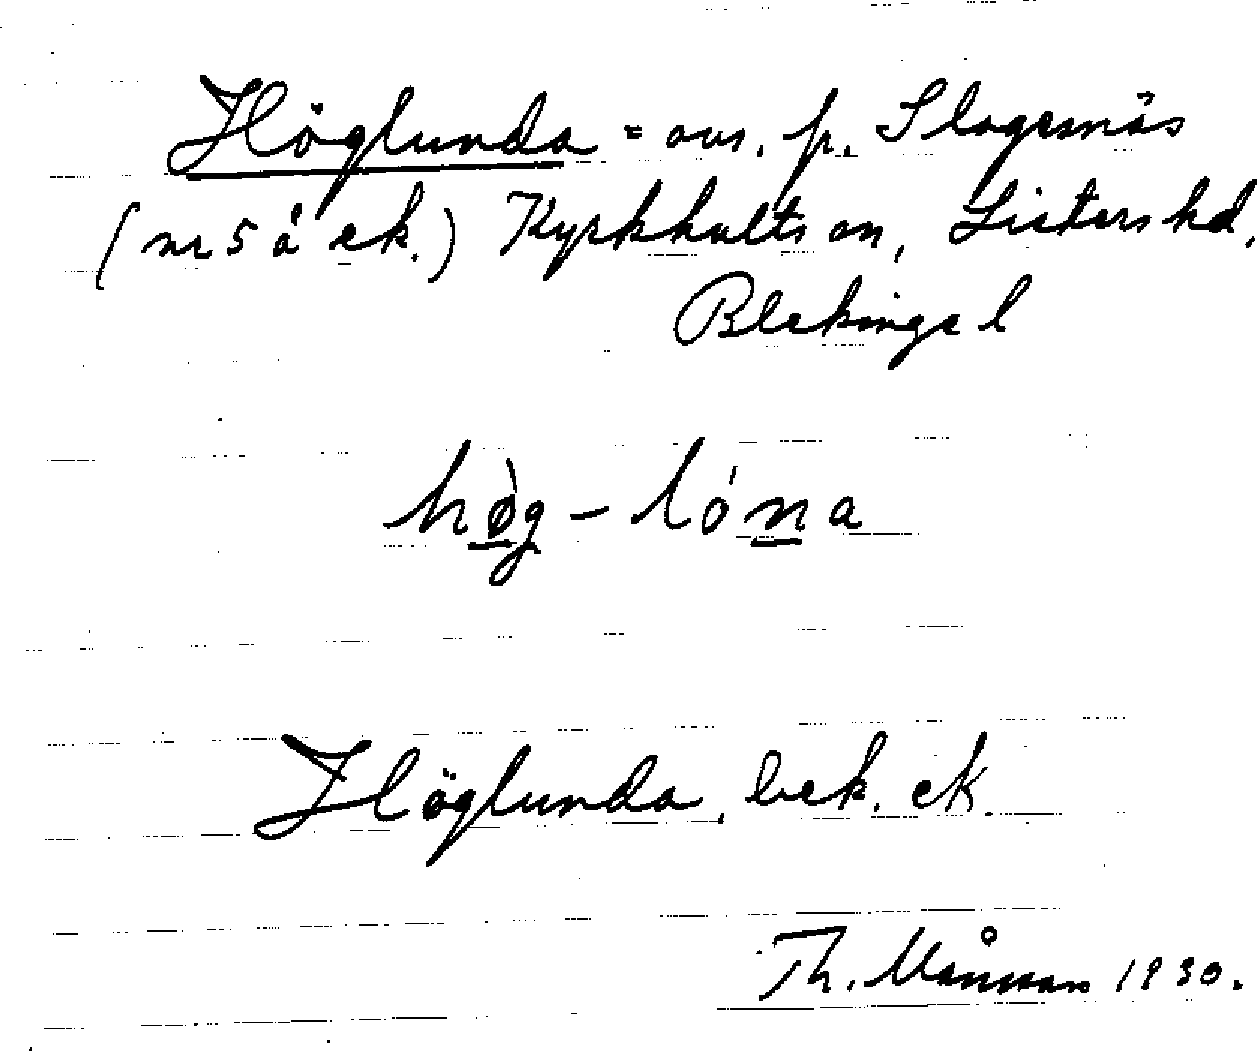 Höglunda = avs. fr. Slagesnäs
(nr 5 å ek.) Kyrkhults sn, Listers hd,
Blekinge l
hø̀g - lóna
Höglunda, bek. ek.
Th. Månsson 1930.